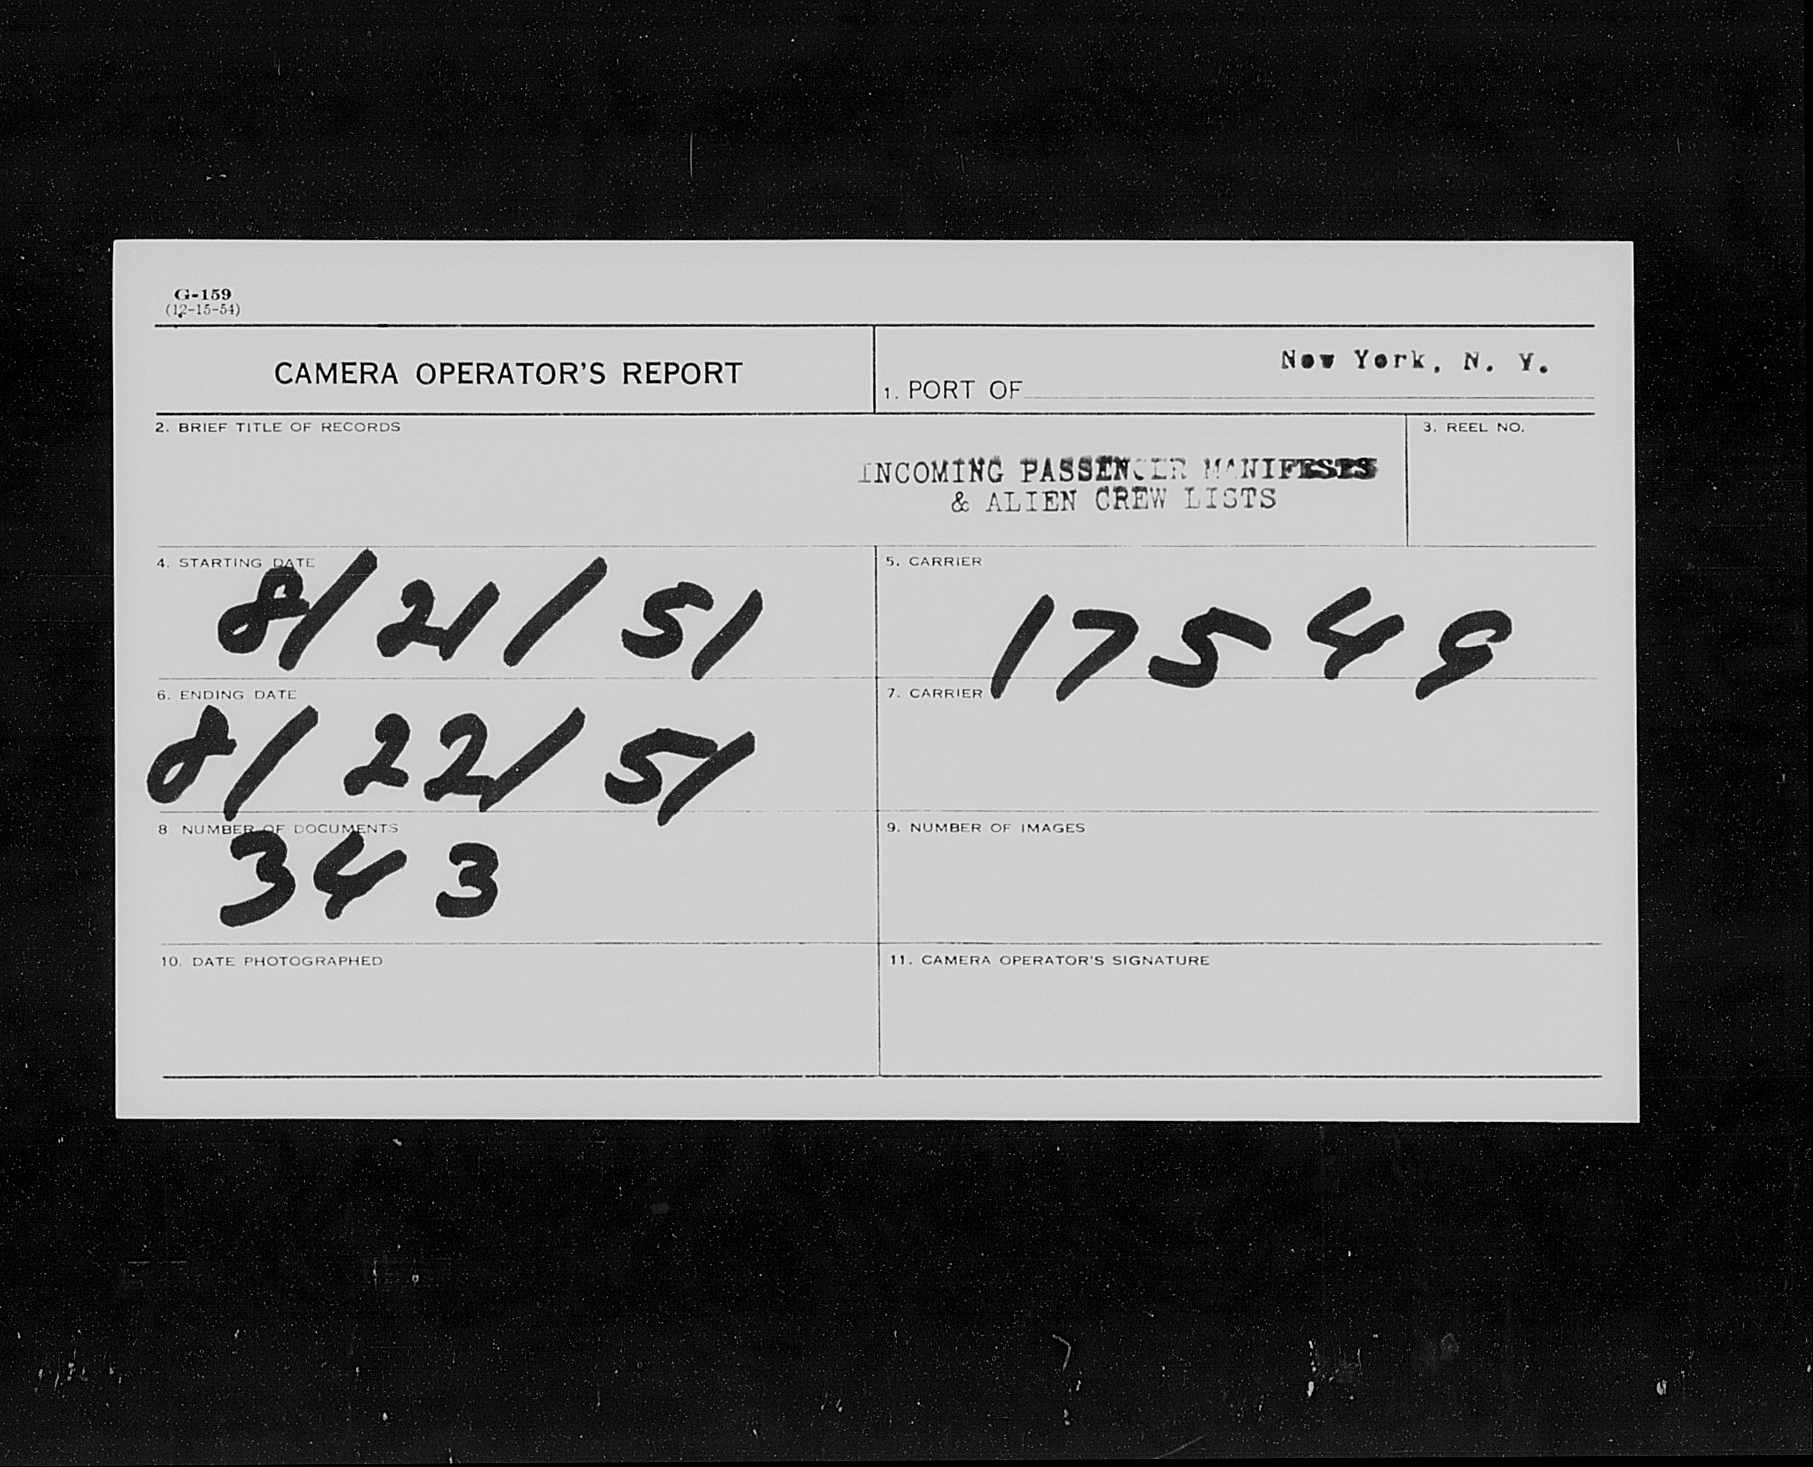 G-159
(12-15-54)
CAMERA OPERATOR'S REPORT
1. PORT OF New York, N. Y.
2. BRIEF TITLE OF RECORDS
3. REEL NO.
INCOMING PASSENGER MANIFESTS
& ALIEN CREW LISTS
4. STARTING DATE
8/21/51
5. CARRIER
17549
6. ENDING DATE
8/22/51
7. CARRIER
8 NUMBER OF DOCUMENTS
343
9. NUMBER OF IMAGES
10. DATE PHOTOGRAPHED
11. CAMERA OPERATOR'S SIGNATURE